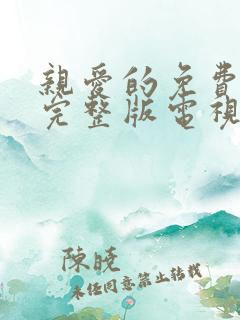 親愛的免費
完整版電視
陳曉
未任同意禁止转载